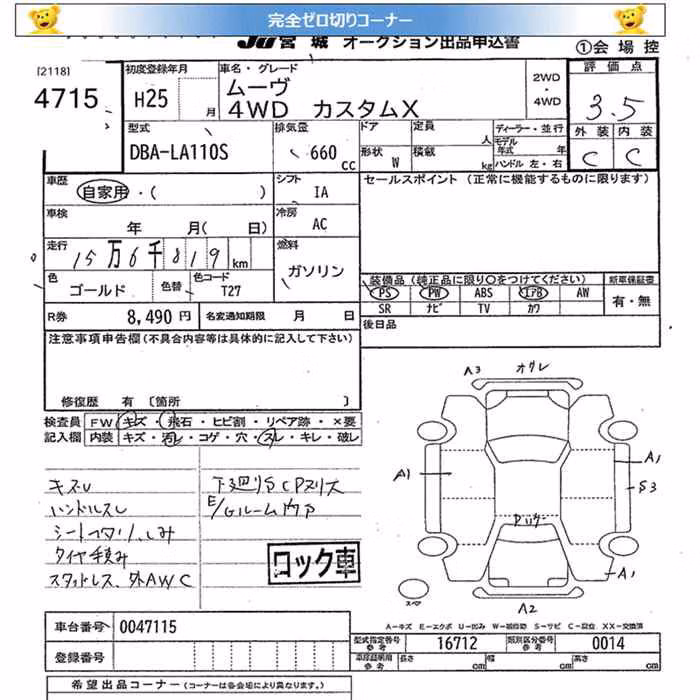 完全ゼロ切りコーナー
JU宮城 オークション出品申込書
①会場控
[2118]
4715
初度登録年月
H25 月
車名・グレード
ムーヴ
4WD カスタムX
2WD
・
4WD
評価点
3.5
外装 内装
C C
型式
DBA-LA110S
排気量
660 cc
ドア 定員 人
形状 W 積載 kg
ディーラー・並行
モデル年式 年
ハンドル 左・右
車歴
自家用・( )
シフト
IA
セールスポイント (正常に機能するものに限ります)
車検
年 月( 日)
冷房
AC
走行
15万6千819 km
燃料
ガソリン
色
ゴールド
色替
色コード
T27
装備品 (純正品に限り○をつけてください)
PS PW ABS エアB AW
SR ナビ TV カワ
新車保証書
有・無
R券 8,490 円
名変通知期限 月 日
後日品
注意事項申告欄(不具合内容等は具体的に記入して下さい)
修復歴 有 〔箇所 〕
検査員
記入欄
FW キズ・飛石・ヒビ割・リペア跡・×要
内装 キズ・汚レ・コゲ・穴・スレ・キレ・破レ
キズU
ハンドルスレ
シートヘタリ、しみ
タイヤ積み
スタッドレス、外AWC
下廻りSCPヌリス
E/Gルーム内ア
ロック車
A3
オクレ
A1
A1
S3
A1
A2
スペア
A-キズ E-エクボ U-凹み W-補修跡 S-サビ C-腐食 XX-交換済
車台番号 0047115
登録番号
型式指定番号
参考
16712
類別区分番号
参考
0014
車庫証明用
参考
長さ cm 幅 cm 高さ cm
希望出品コーナー (コーナーは各会場により異なります。)